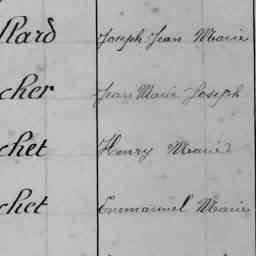 llard Joseph Jean Marie
cher Jean Marie Joseph
chet Henry Marie
chet Emmanuel Marie